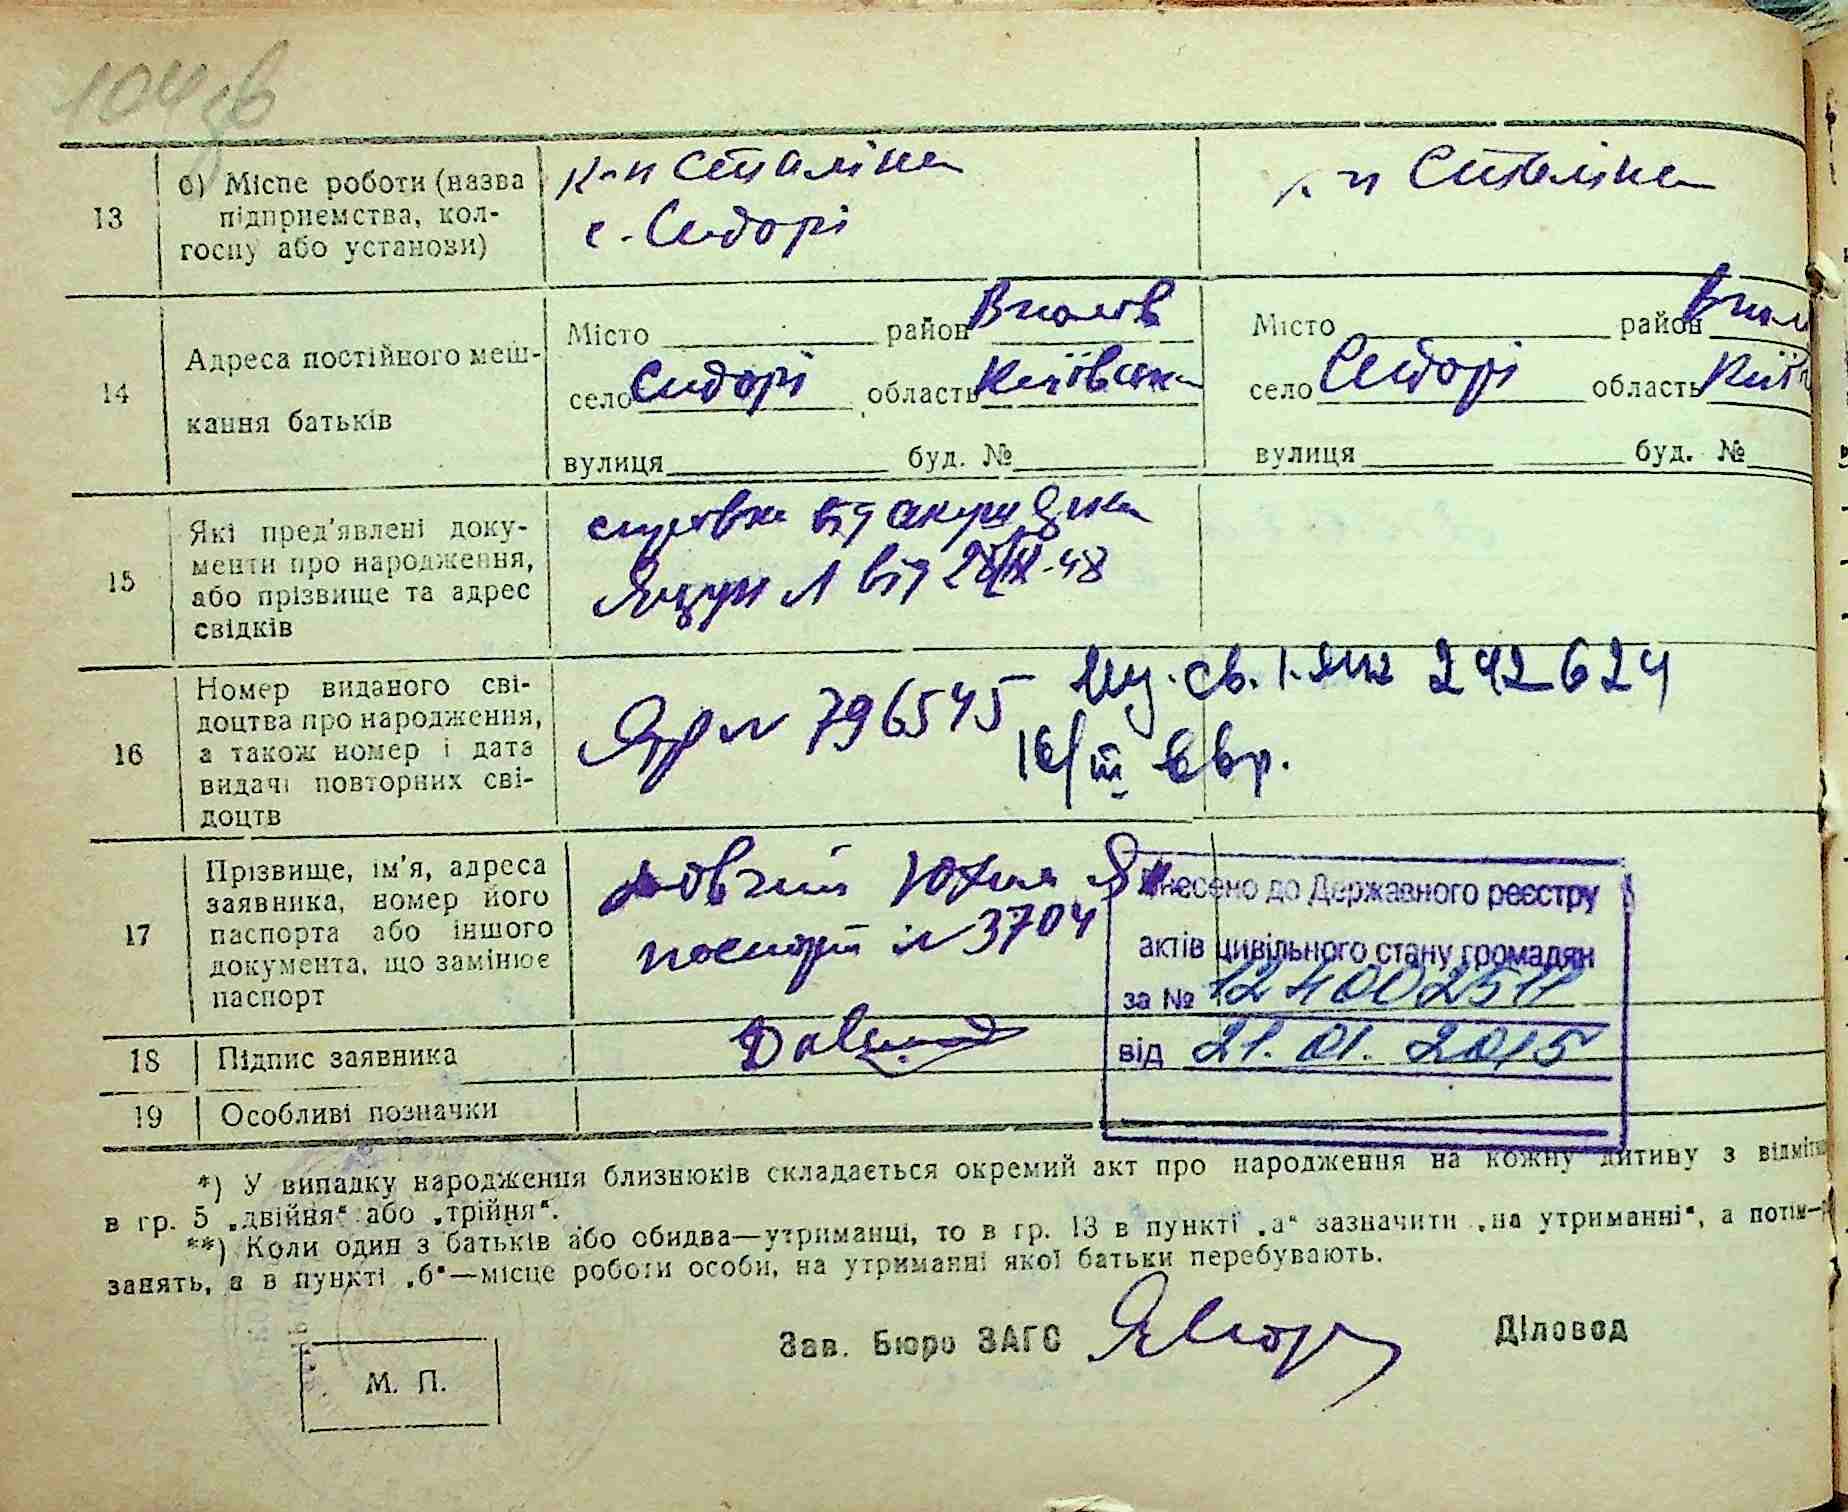 104 зв
13 б) Місце роботи (назва підприємства, колгоспу або установи)
к-п Сталіна
с. Сидорі
к-п Сталіна
14 Адреса постійного мешкання батьків
Місто район
село Сидорі область Київська
вулиця буд. №
Місто район
село Сидорі область Київ
вулиця буд. №
15 Які пред'явлені документи про народження, або прізвище та адрес свідків
справка від акуш
Яцун Л від 48
16 Номер виданого свідоцтва про народження, а також номер і дата видачі повторних свідоцтв
№ 796545
св. 242624
16/III
17 Прізвище, ім'я, адреса заявника, номер його паспорта або іншого документа, що замінює паспорт
Довгий Юхим
паспорт № 3704
Внесено до Державного реєстру
актів цивільного стану громадян
за №
від 21.01.2015
18 Підпис заявника
19 Особливі позначки
*) У випадку народження близнюків складається окремий акт про народження на кожну дитину з відміт
в гр. 5 „двійня“ або „трійня“.
**) Коли один з батьків або обидва—утриманці, то в гр. 13 в пункті „а“ зазначити „на утриманні“, а потім—
занять, а в пункті „б“—місце роботи особи, на утриманні якої батьки перебувають.
Зав. Бюро ЗАГС Діловод
М. П.